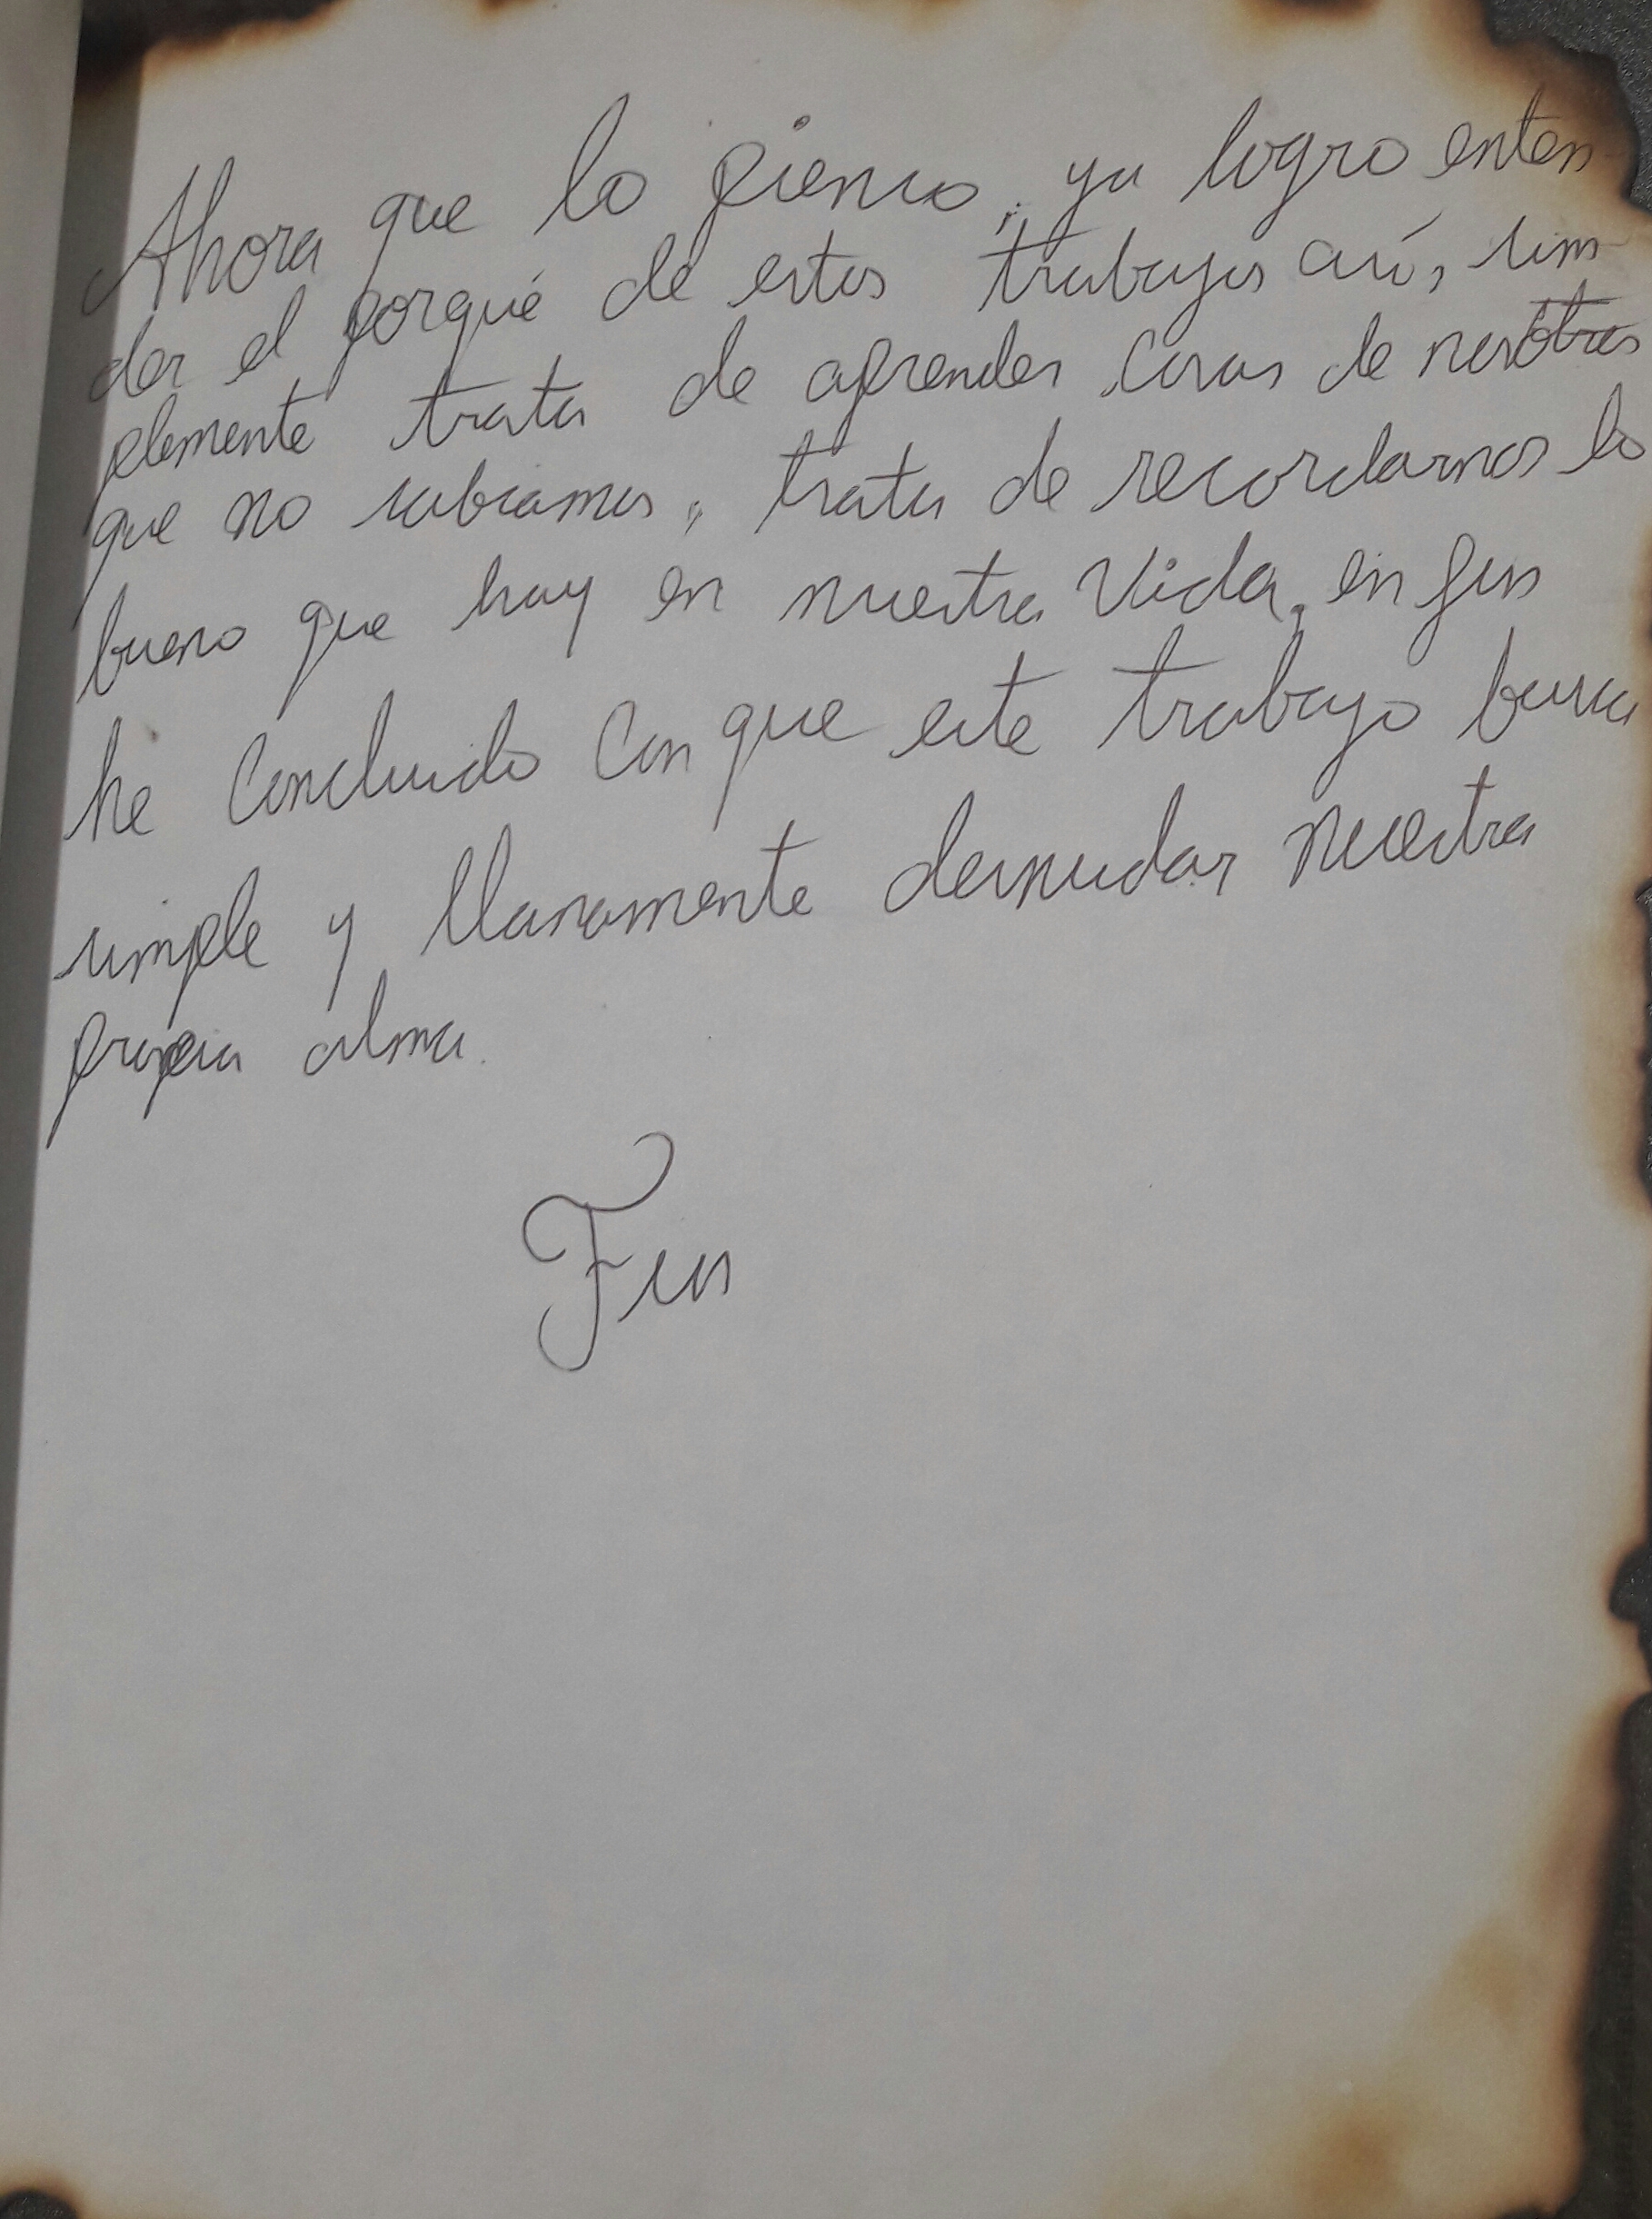 Ahora que lo pienso, ya logro enten
der el porqué de estos trabajos así, sim
plemente trata de aprender cosas de nosotros
que no sabiamos, trata de recordarnos lo
bueno que hay en nuestra vida, en fin
he concluido con que este trabajo busca
simple y llanamente desnudar nuestra
propia alma.
Fin